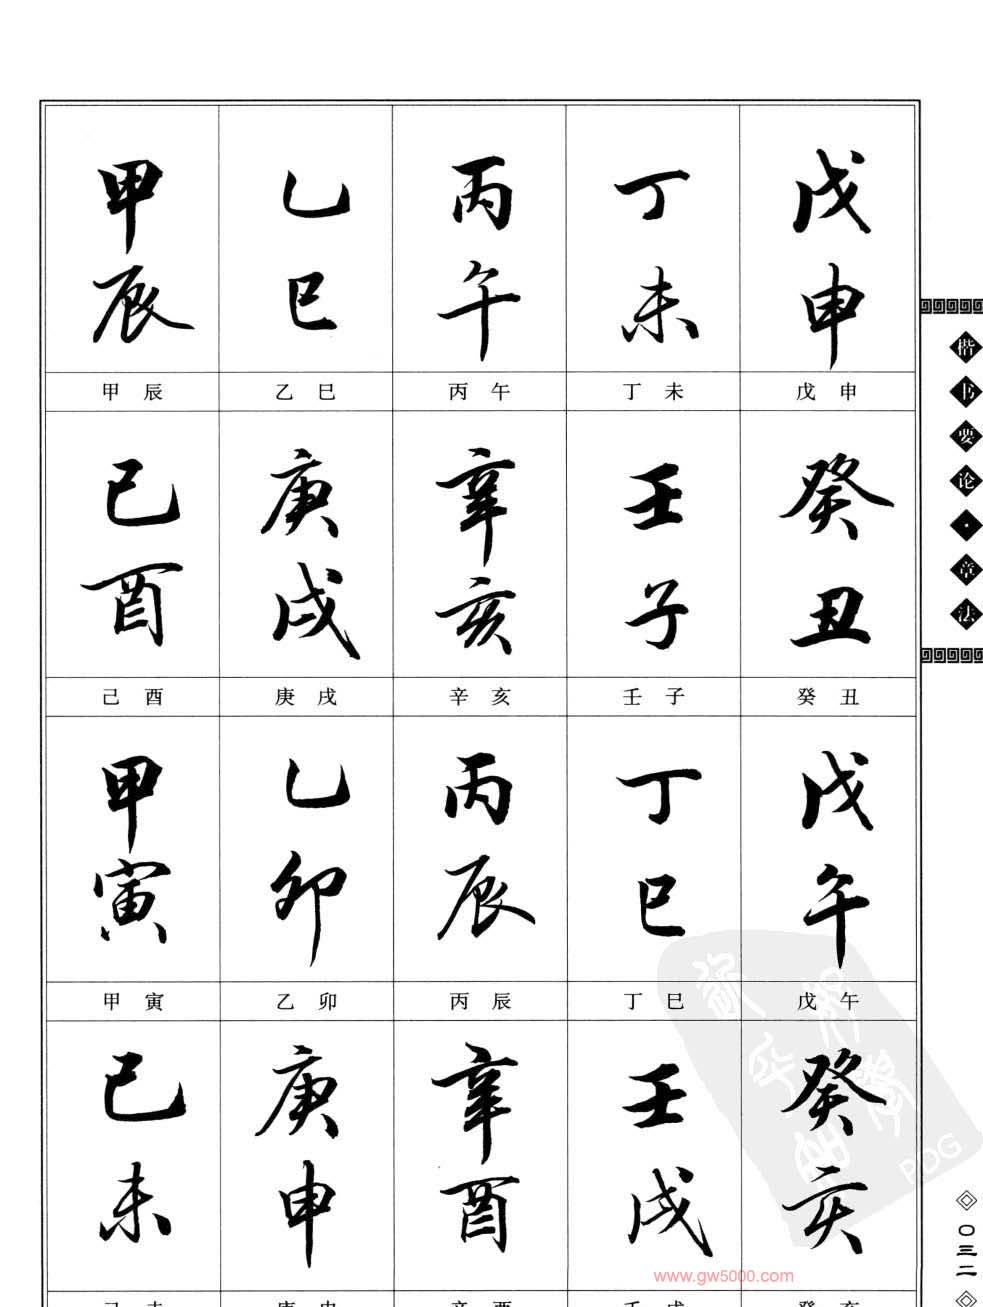 甲 乙 丙 丁 戊
辰 巳 午 未 申
甲辰 乙巳 丙午 丁未 戊申
己 庚 辛 壬 癸
酉 戌 亥 子 丑
己酉 庚戌 辛亥 壬子 癸丑
甲 乙 丙 丁 戊
寅 卯 辰 巳 午
甲寅 乙卯 丙辰 丁巳 戊午
己 庚 辛 壬 癸
未 申 酉 戌 亥
己未 庚申 辛酉 壬戌 癸亥
楷书要论·章法
〇三二
www.gw5000.com
PDG